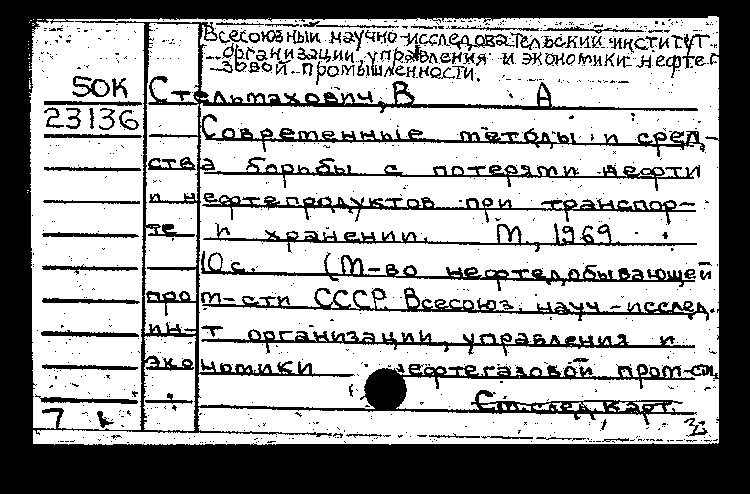 Всесоюзный научно-исследовательский институт
организации, управления и экономики нефтега-
зовой промышленности.
50К Стельмахович, В А
23136 Современные методы и сред-
ства борьбы с потерями нефти
и нефтепродуктов при транспор-
те и хранении. М, 1969.
10с. (М-во нефтедобывающей
пром-сти СССР. Всесоюз. науч-исслед.
ин-т организации, управления и
экономики нефтегазовой пром-сти
См.след. карт.
7